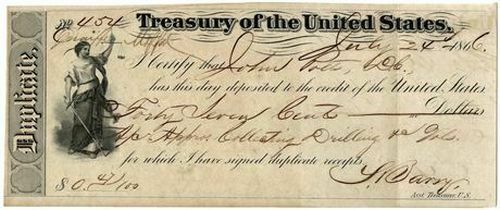 No 454
Treasury of the United States,
July 24th 1866
I certify that John Potts, Db.
has this day deposited to the credit of the United States
Forty Seven Cents Dollars
Collecting Drilling &c Vols.
for which I have signed duplicate receipts
$0.47/100
S. Barry
Asst. Treasurer, U.S.
Duplicate,